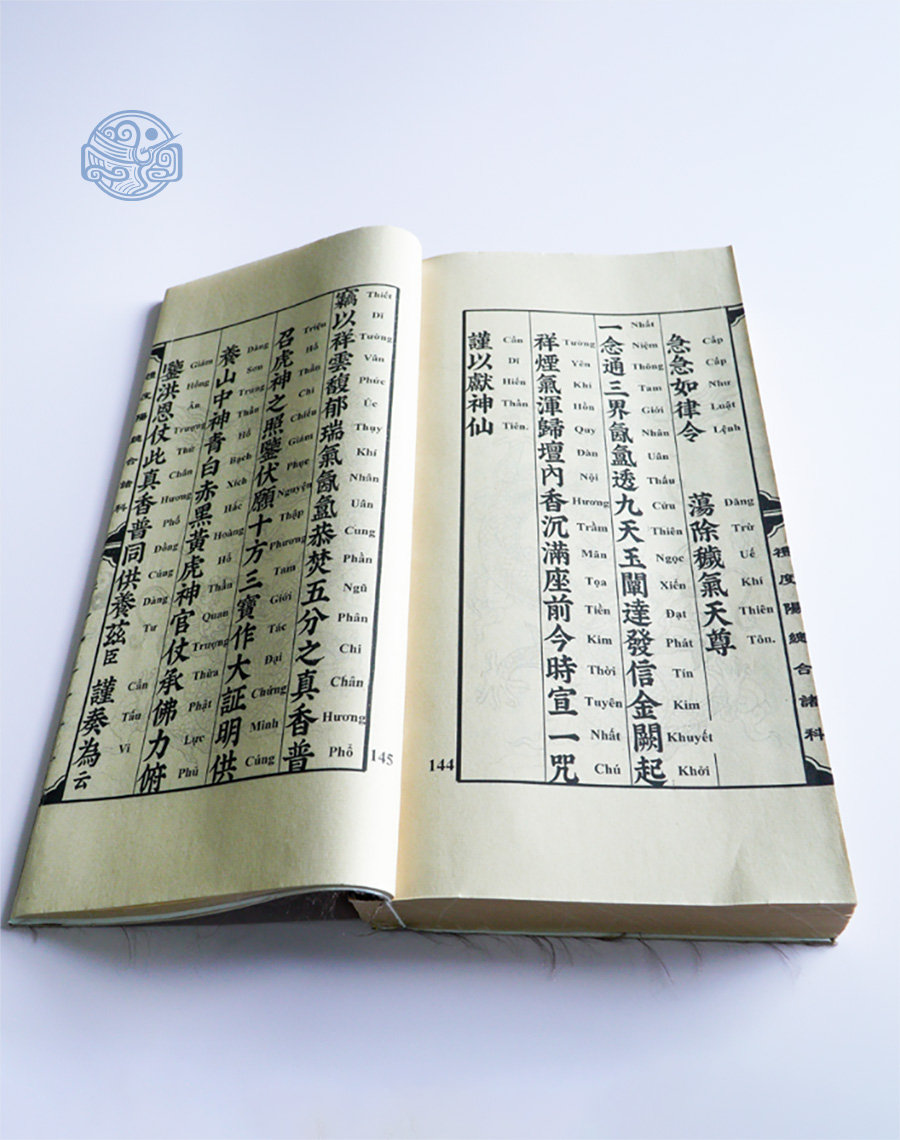 禮度陽總合諸科
急急如律令 蕩除穢氣天尊
Cấp Cấp Như Luật Lệnh Đãng Trừ Uế Khí Thiên Tôn.
一念通三界氤氳透九天玉闡達發信金闕起
Nhất Niệm Thông Tam Giới Nhân Uân Thấu Cửu Thiên Ngọc Xiển Đạt Phát Tín Kim Khuyết Khởi
祥煙氣渾歸壇內香沉滿座前今時宣一咒
Tường Yên Khí Hồn Quy Đàn Nội Hương Trầm Mãn Tọa Tiền Kim Thời Tuyên Nhất Chú
謹以獻神仙
Cẩn Dĩ Hiến Thần Tiên.
144
竊以祥雲馥郁瑞氣氤氳恭焚五分之真香普
Thiết Dĩ Tường Vân Phức Úc Thụy Khí Nhân Uân Cung Phần Ngũ Phân Chi Chân Hương Phổ
召虎神之照鑒伏願十方三寶作大証明供
Triệu Hổ Thần Chi Chiếu Giám Phục Nguyện Thập Phương Tam Giới Tác Đại Chứng Minh Cúng
養山中神青白赤黑黃虎神官仗承佛力俯
Dàng Sơn Trung Thần Hổ Bạch Xích Hắc Hoàng Hổ Thần Quan Trượng Thừa Phật Lực Phủ
鑒洪恩仗此真香普同供養茲臣 謹奏為云
Giám Hồng Ân Trượng Thử Chân Hương Phổ Đồng Cúng Dàng Tư Cẩn Tấu Vi
禮度陽總合諸科
145